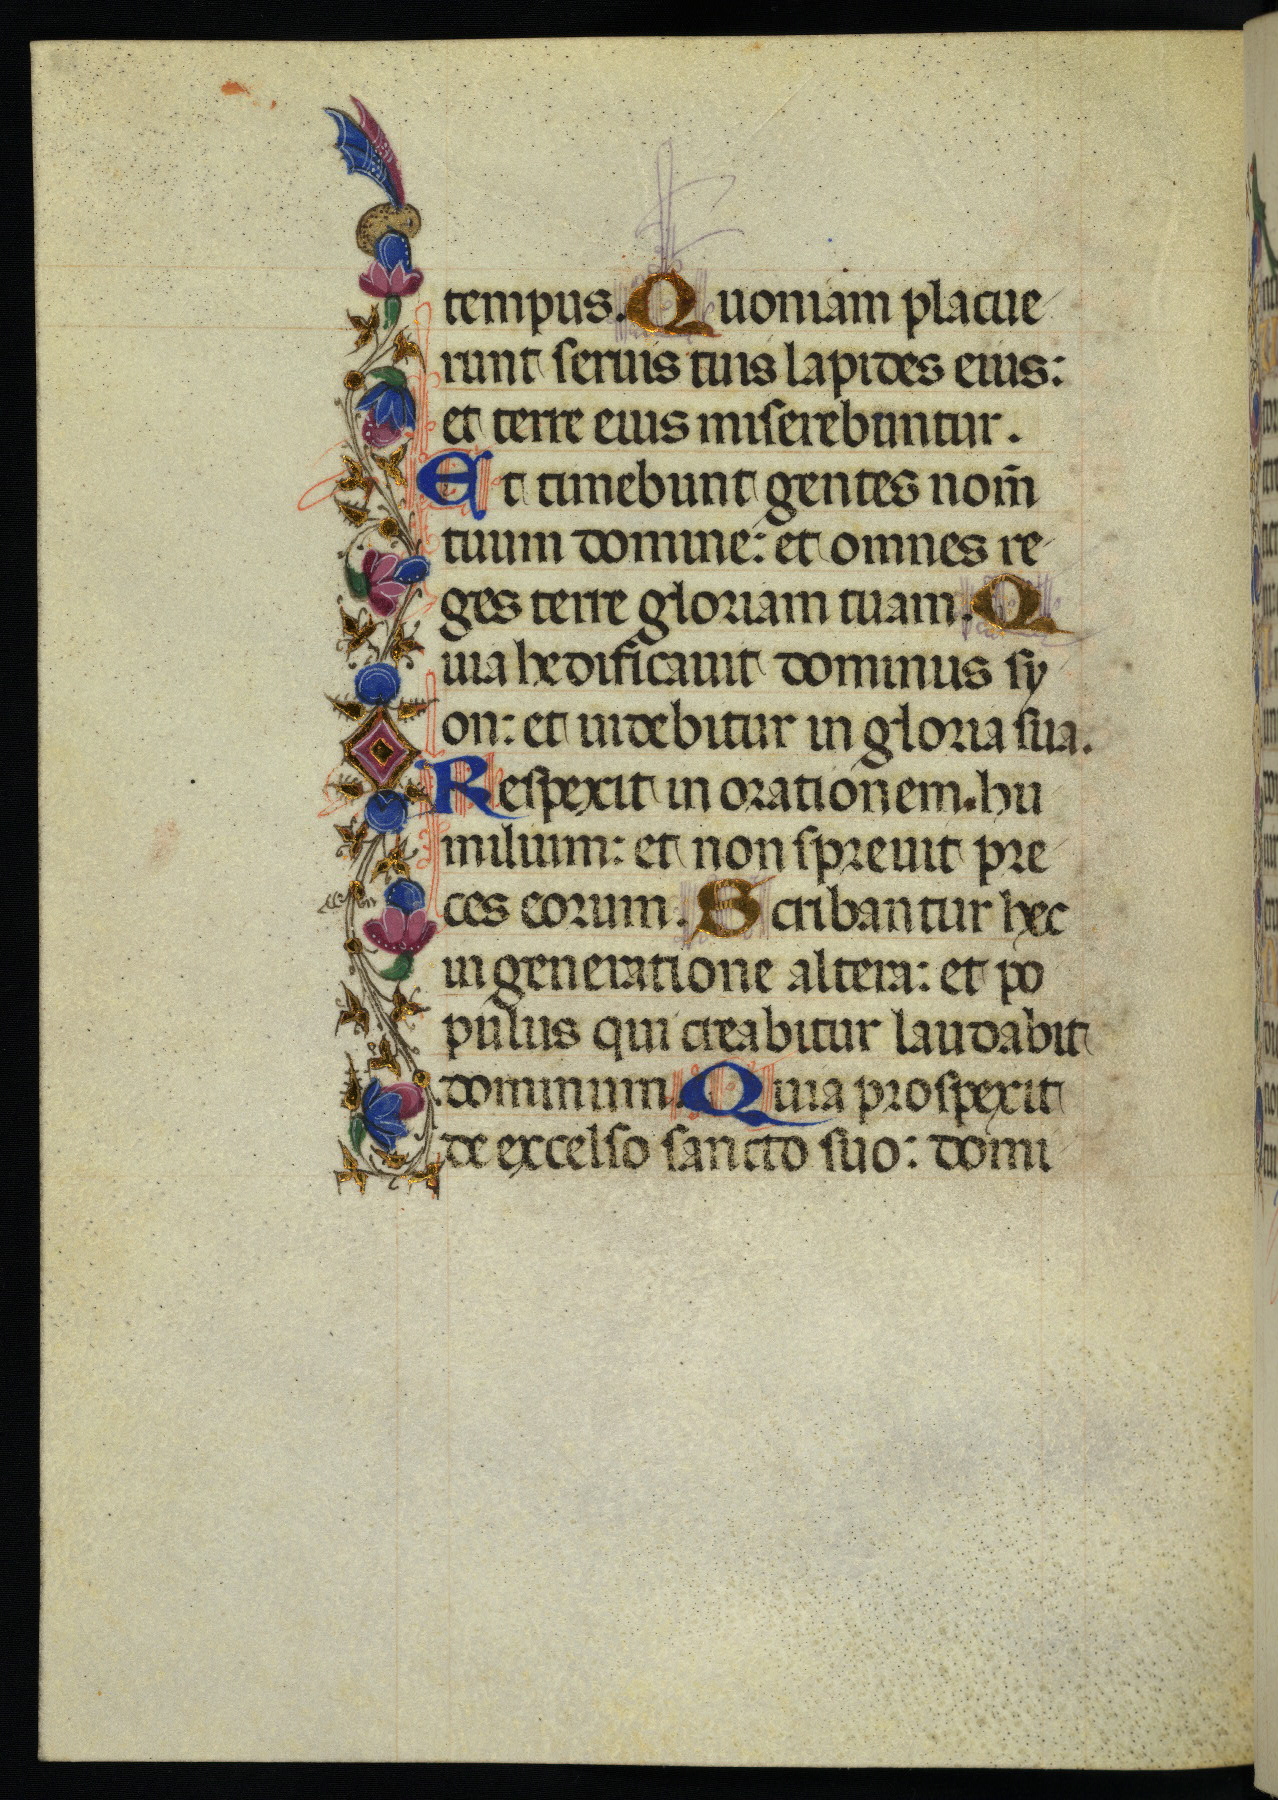 tempus. Quoniam placue
runt seruis tuis lapides eius:
et terre eius miserebuntur.
Et timebunt gentes nom̄
tuum domine: et omnes re
ges terre gloriam tuam. Q
uia hedificauit dominus sy
on: et uidebitur in gloria sua.
Respexit in orationem. hu
milium: et non spreuit pre
ces eorum. Scribantur hec
in generatione altera: et po
pulus qui creabitur laudabit
dominum. Quia prospexit
de excelso sancto suo: domi